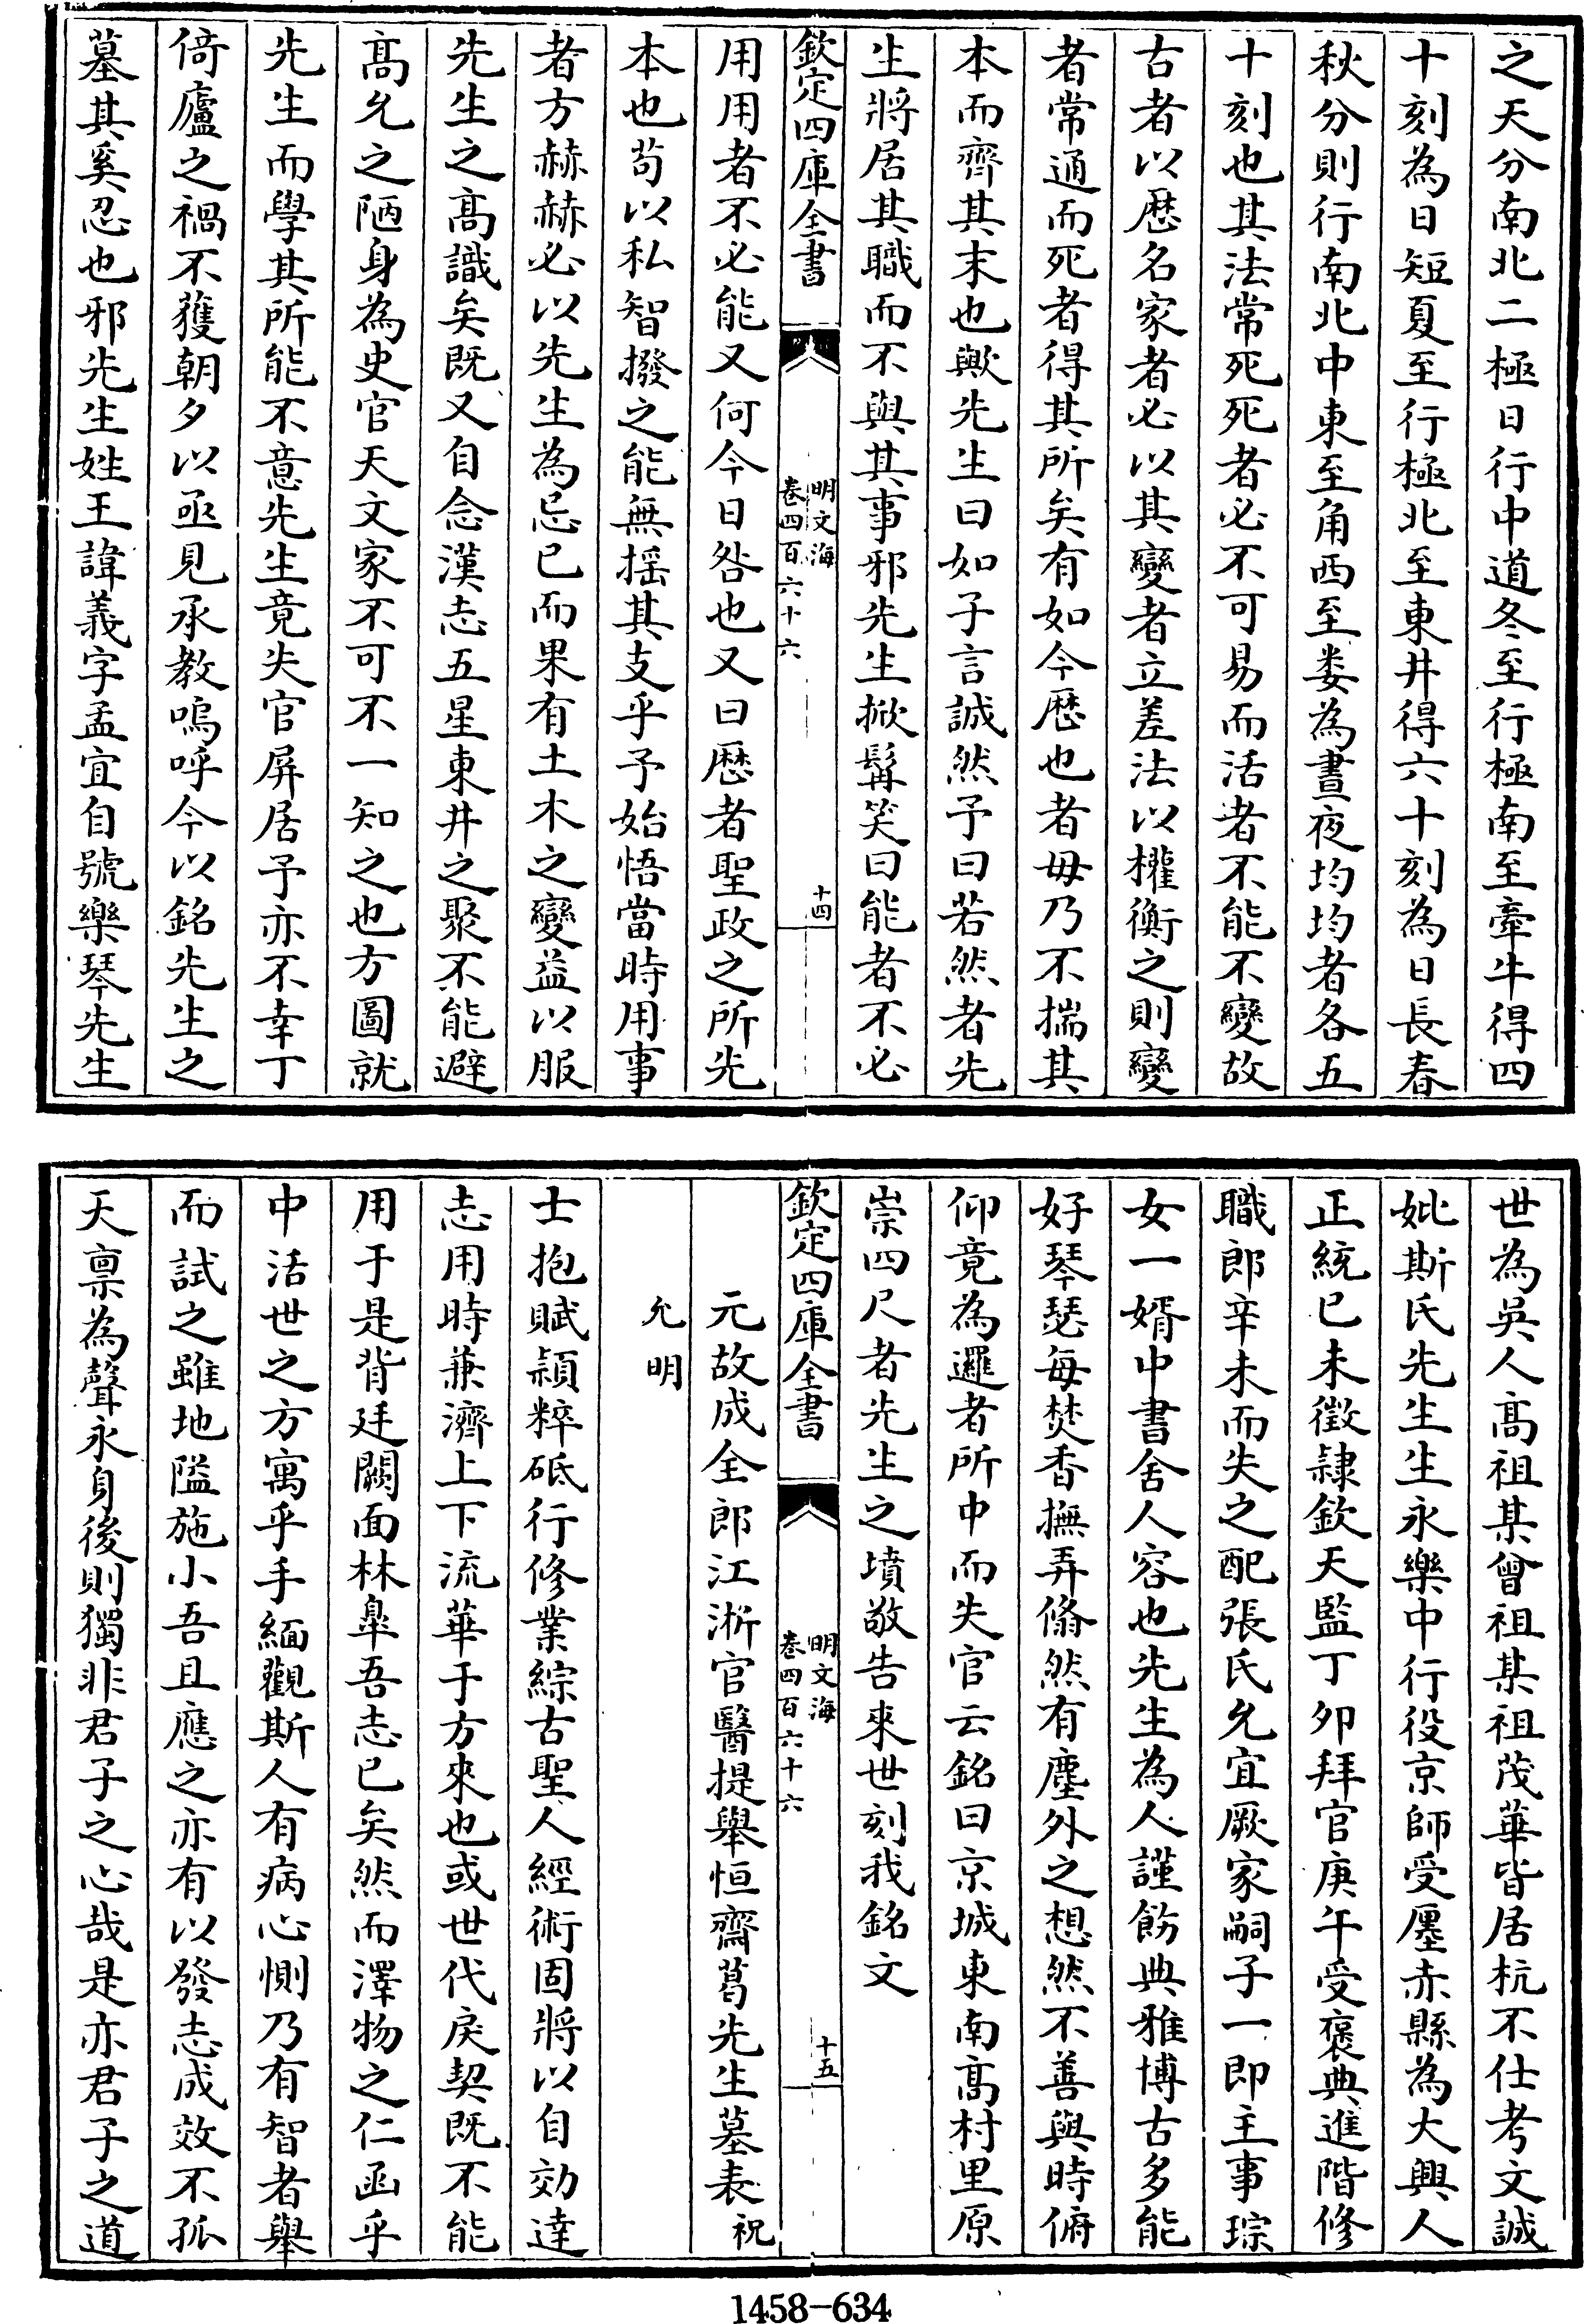 之天分南北二極日行中道冬至行極南至牽牛得四
十刻為日短夏至行極北至東井得六十刻為日長春
秋分則行南北中東至角西至婁為晝夜均均者各五
十刻也其法常死死者必不可易而活者不能不變故
古者以厯名家者必以其變者立差法以權衡之則變
者常通而死者得其所矣有如今厯也者毋乃不揣其
本而齊其末也歟先生曰如子言誠然予曰若然者先
生將居其職而不與其事邪先生掀髯笑曰能者不必
欽定四庫全書
明文海
卷四百六十六
十四
用用者不必能又何今日咎也又曰厯者聖政之所先
本也茍以私智撥之能無揺其支乎予始悟當時用事
者方赫赫必以先生為忌已而果有土木之變益以服
先生之髙識矣既又自念漢志五星東井之聚不能避
髙允之陋身為史官天文家不可不一知之也方圖就
先生而學其所能不意先生竟失官屏居予亦不幸丁
倚廬之禍不獲朝夕以亟見承教嗚呼今以銘先生之
墓其奚忍也邪先生姓王諱義字孟宜自號樂琴先生
世為吳人髙祖某曾祖某祖茂華皆居杭不仕考文誠
妣斯氏先生生永樂中行役京師受廛赤縣為大興人
正統已未徵隷欽天監丁夘拜官庚午受褒典進階修
職郎辛未而失之配張氏允宜厥家嗣子一即主事琮
女一婿中書舍人容也先生為人謹飭典雅博古多能
好琴瑟每焚香撫弄翛然有塵外之想然不善與時俯
仰竟為邏者所中而失官云銘曰京城東南髙村里原
崇四尺者先生之墳敬告來世刻我銘文
欽定四庫全書
明文海
卷四百六十六
十五
元故成全郎江浙官醫提舉恒齋葛先生墓表祝
允明
士抱賦頴粹砥行修業綜古聖人經術固將以自効達
志用時兼濟上下流華于方來也或世代戾契既不能
用于是背廷闕面林臯吾志已矣然而澤物之仁函乎
中活世之方寓乎手緬觀斯人有病心惻乃有智者舉
而試之雖地隘施小吾且應之亦有以發志成效不孤
天禀為聲永身後則獨非君子之心哉是亦君子之道
1458-634